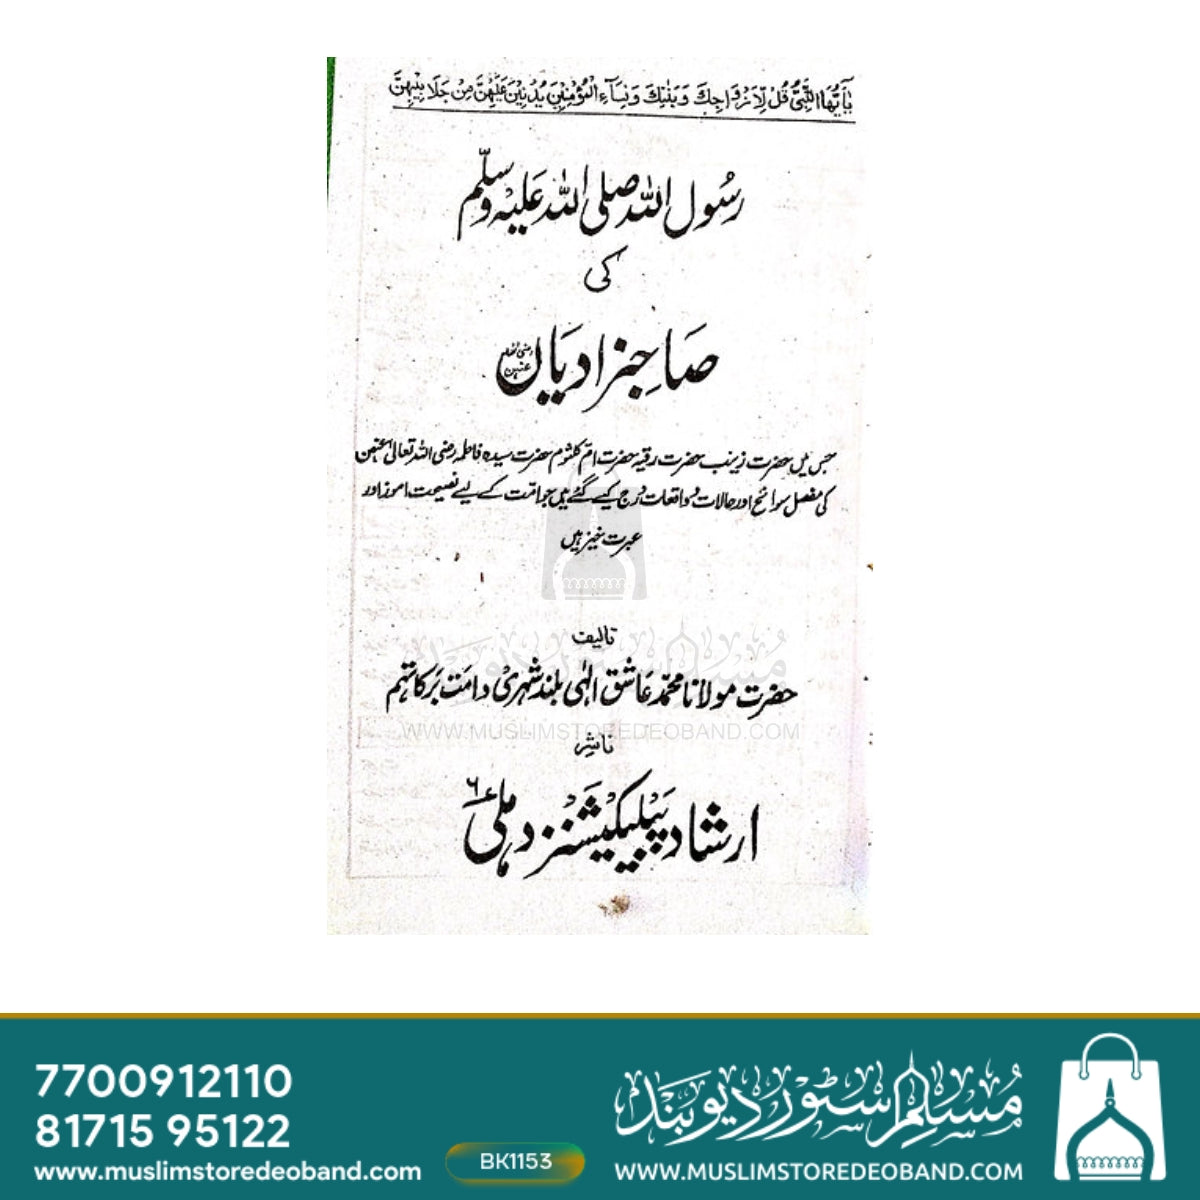 يٰاَيُّهَا النَّبِيُّ قُلْ لِّاَزْوَاجِكَ وَبَنٰتِكَ وَنِسَآءِ الْمُؤْمِنِيْنَ يُدْنِيْنَ عَلَيْهِنَّ مِنْ جَلَابِيْبِهِنَّ
رسُول اللہ صلی اللہ عَلیْہ وسلّم
کی
صَاحِبزادیَاں رضی اللہ عنہن
جس میں حضرت زینب حضرت رقیہ حضرت ام کلثوم حضرت سیدہ فاطمہ رضی اللہ تعالیٰ عنہن
کی مفصل سوانح اور حالات و واقعات درج کیے گئے ہیں جو امت کے لیے نصیحت آموز اور
عبرت خیز ہیں
تالیف
حضرت مولانا محمد عاشق الٰہی بلند شہری دامت برکاتہم
مسلم سٹور دیوبند
WWW.MUSLIMSTOREDEOBAND.COM
ناشر
ارشاد پبلیکیشنز دہلی ۶
7700912110
81715 95122
www.muslimstoredeoband.com
BK1153
مسلم سٹور دیوبند
WWW.MUSLIMSTOREDEOBAND.COM